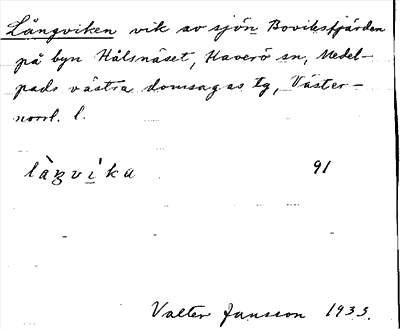 Långviken vik av sjön Boviksfjärden
på byn Hålsnäset, Haverö sn, Medel-
pads västra domsagas tg, Väster-
norrl. l.
làŋvi̱ka 91
Valter Jansson 1933.